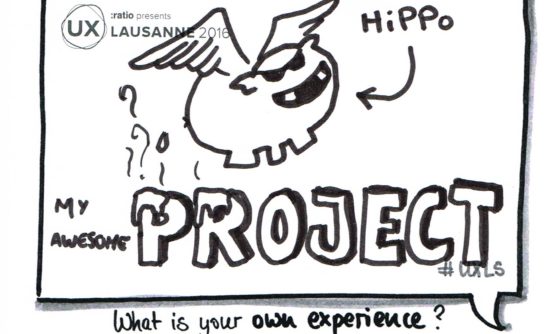 UX
:ratio presents
LAUSANNE 2016
HiPPo
?
?
?!
MY
AWESOME
PROJECT
#UXLS
What is your own experience?